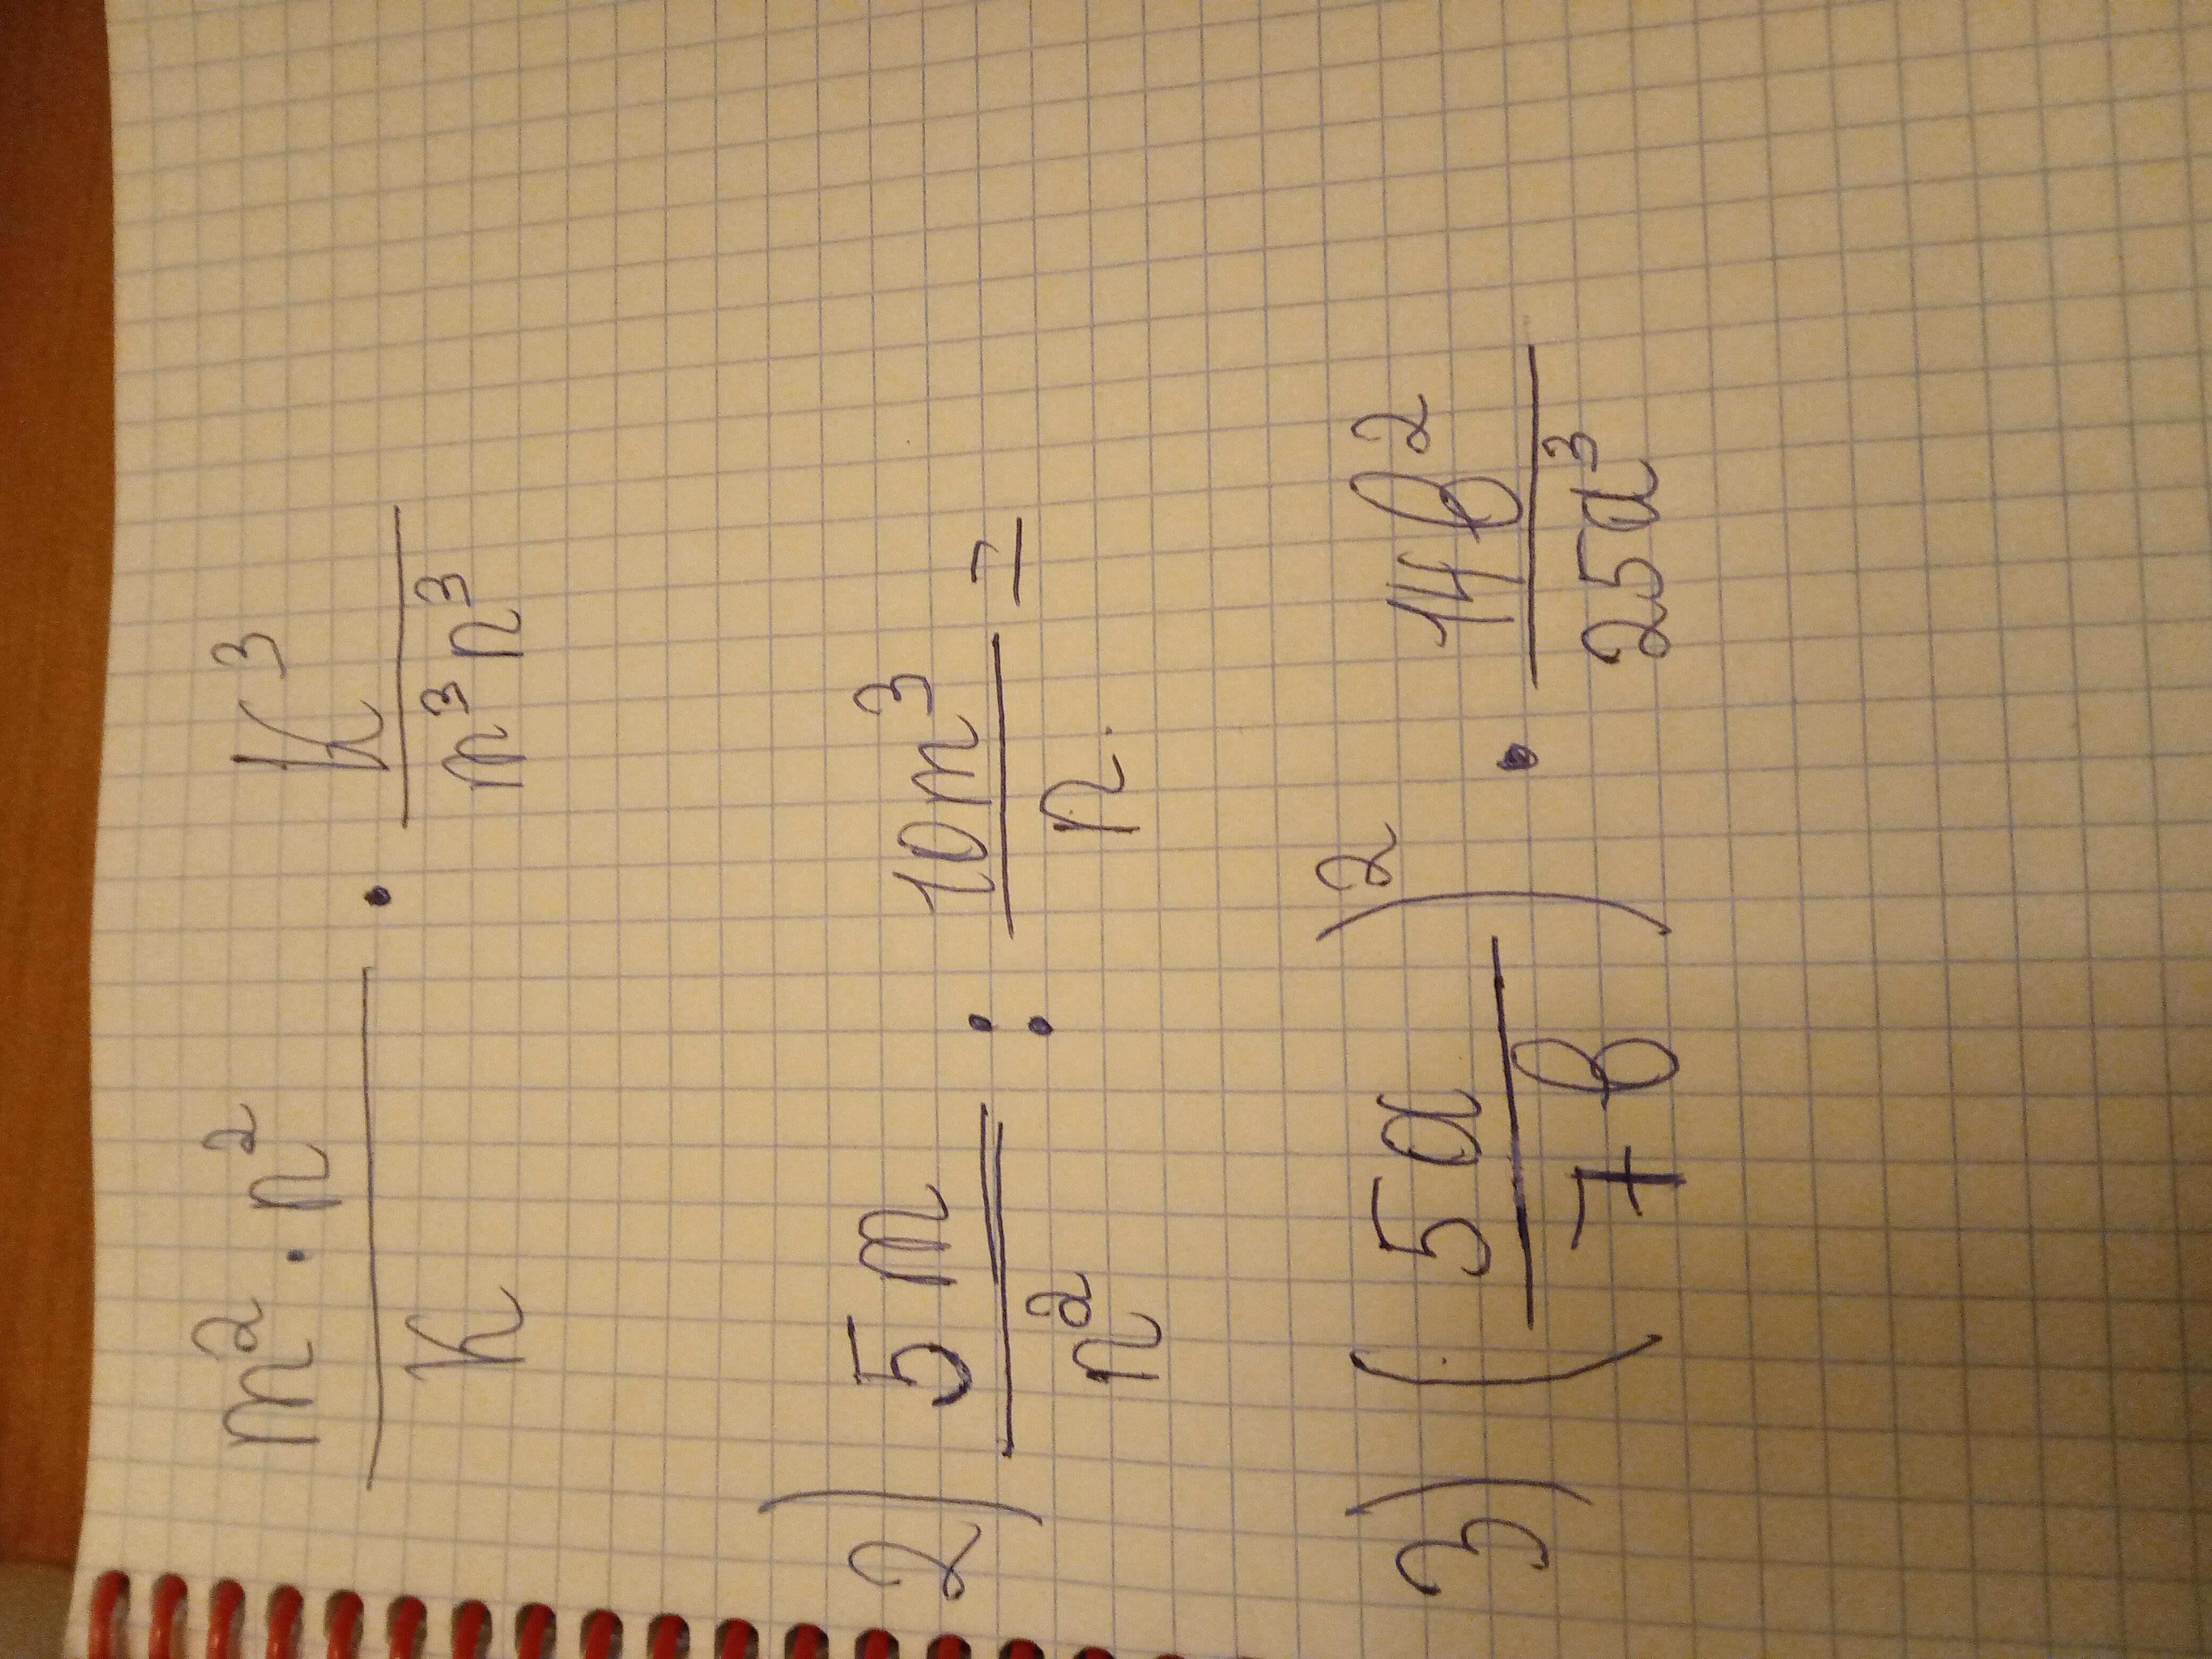 m² · n² / k · k³ / m³n³
2) 5m / n² : 10m³ / n =
3) (5a / 7b)² · 14b² / 25a³